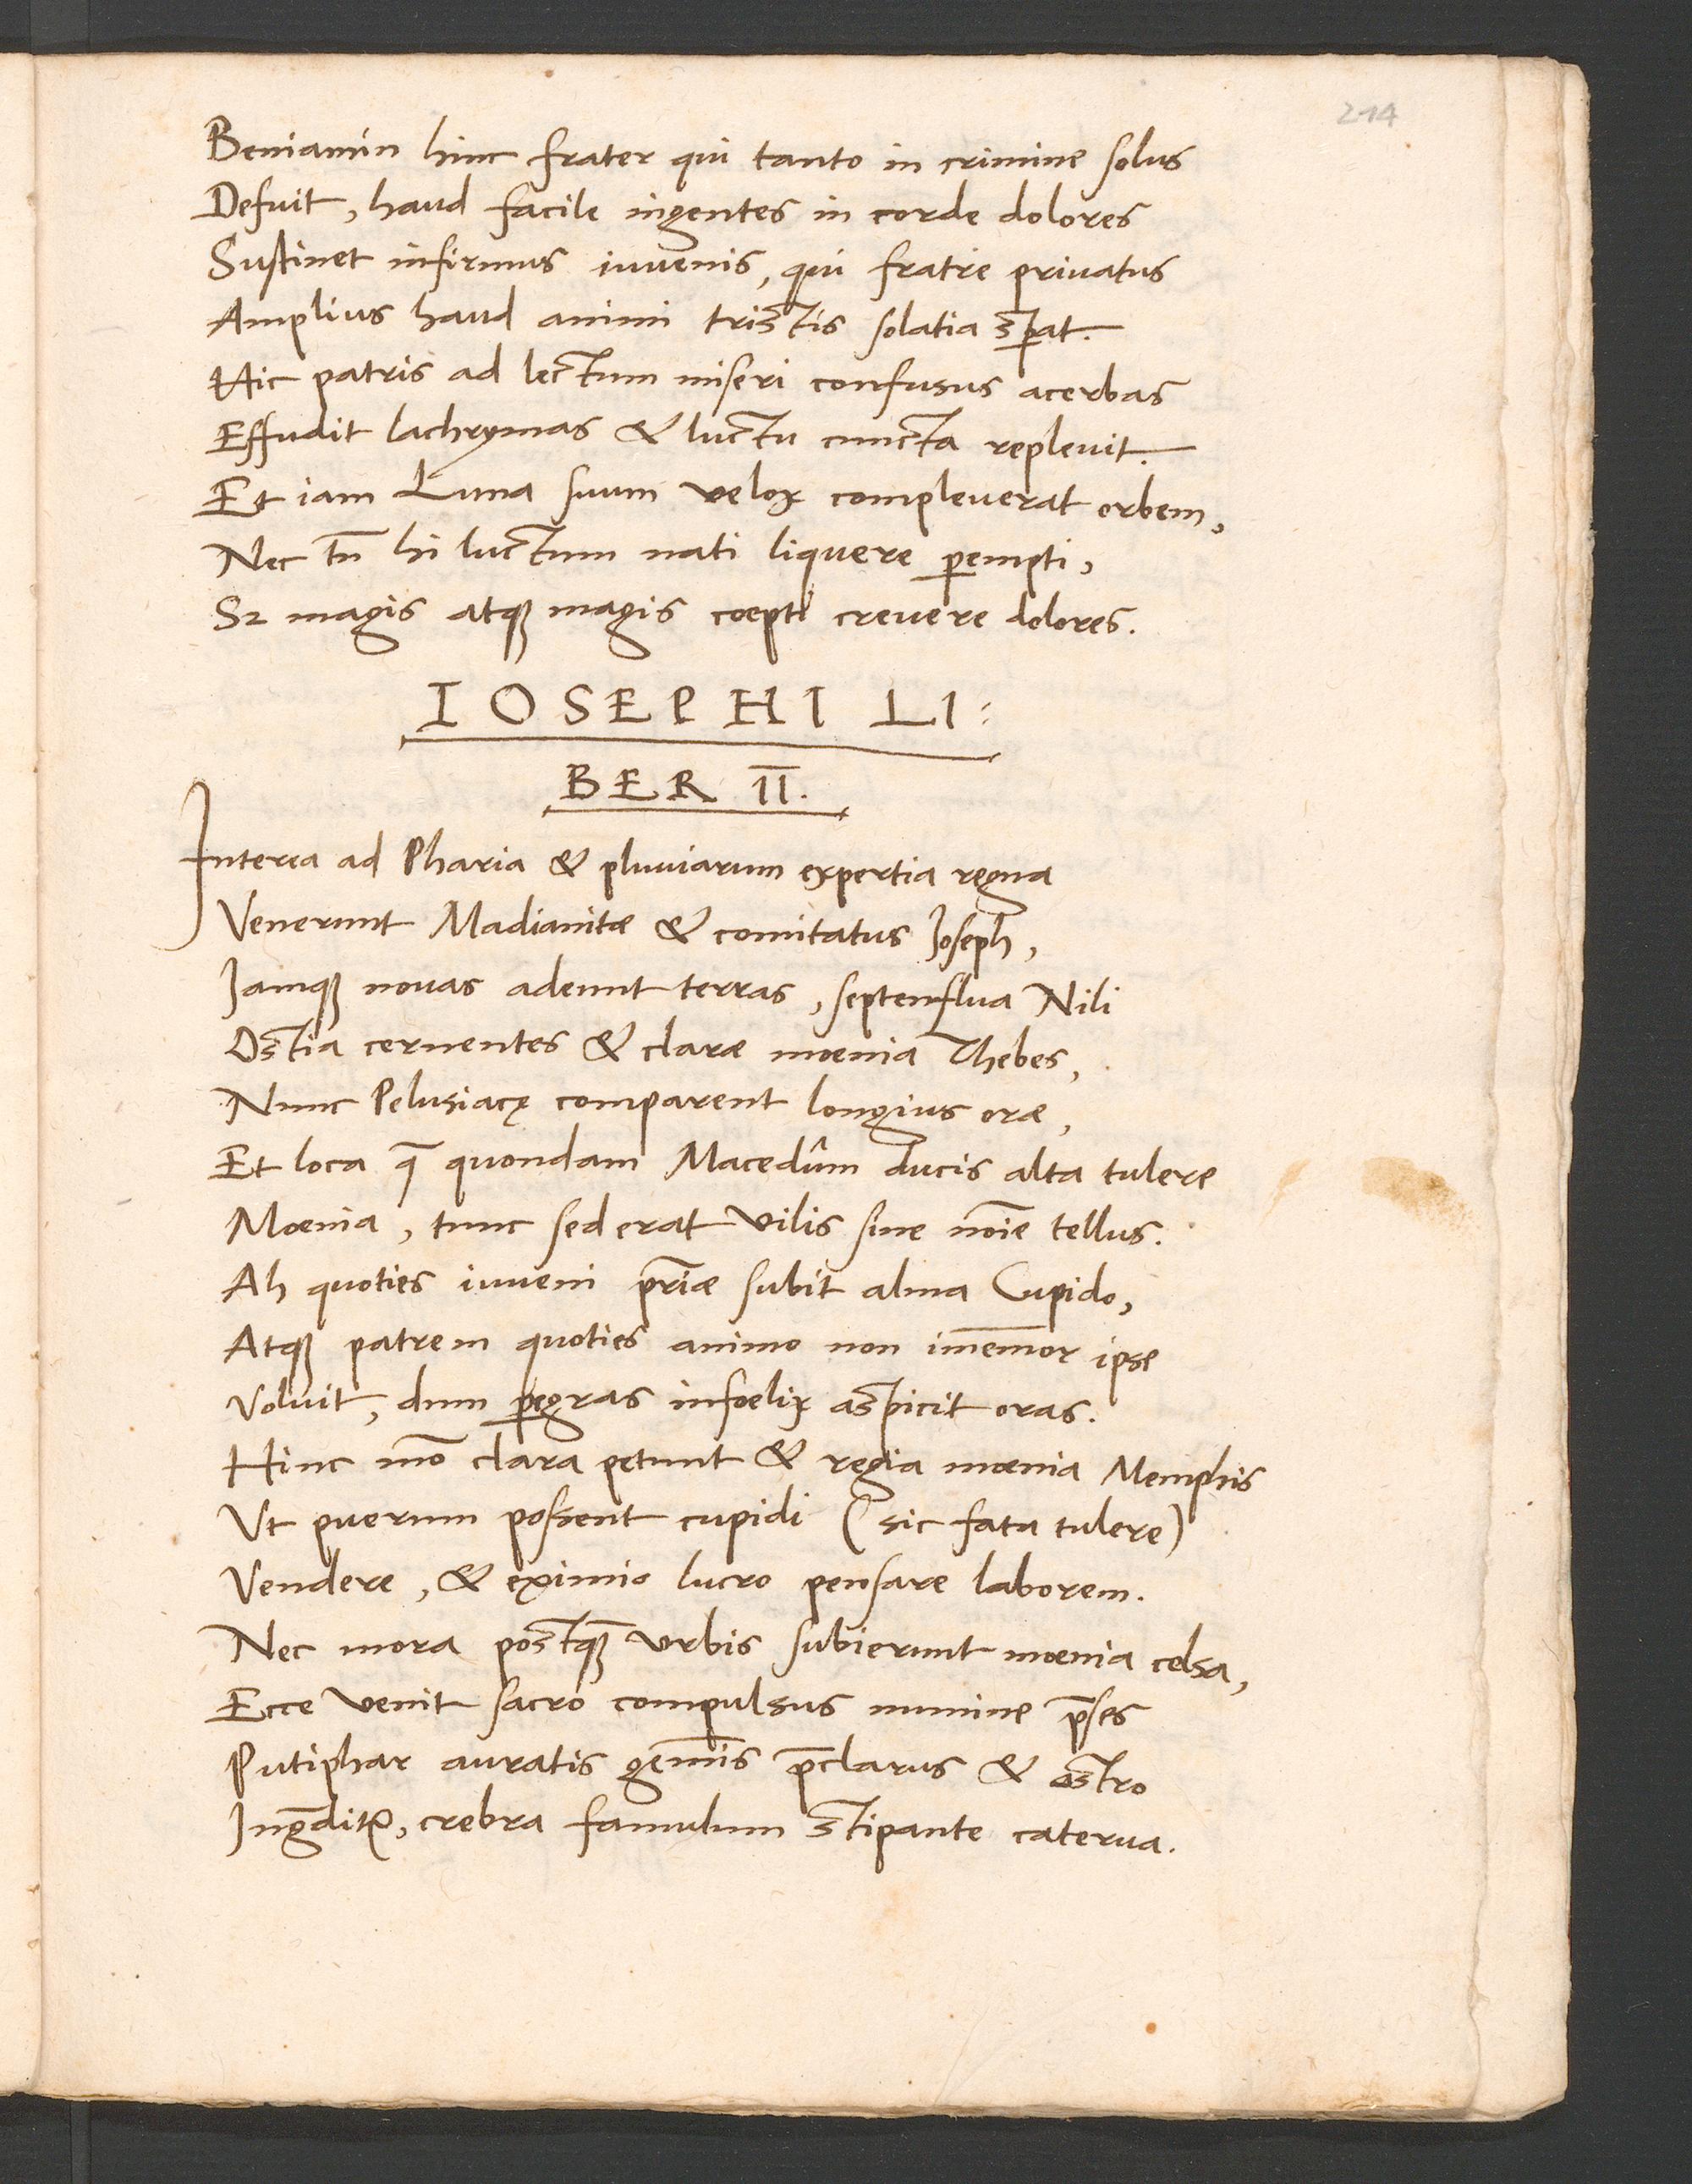 214
Beniamin hinc frater qui tanto in crimine solus
Defuit, haud facile ingentes in corde dolores
Sustinet infirmus iuvenis, qui fratre privatus
Amplius haud animi tristis solatia sꝑat.
Hic patris ad lectum miseri confusus acerbas
Effudit lachrymas & luctu cuncta replevit.
Et iam Luna suum velox compleverat orbem,
Nec tñ hi luctum nati liquere ꝑempti,
Sꝫ magis atqꝫ magis coepti crevere dolores.
IOSEPHI LI:
BER II.
Interea ad Pharia & pluviarum expertia regna
Venerunt Madianitæ & comitatus Ioseph,
Iamqꝫ novas adeunt terras, septenflua Nili
Ostia cernentes & claræ mœnia Thebes,
Nunc Pelusiacę comparent longius oræ,
Et loca q̄ quondam Macedûm ducis alta tulere
Moenia, tunc sed erat vilis sine noīe tellus.
Ah quoties iuveni pr̄iæ subit alma Cupido,
Atqꝫ patrem quoties animo non im̄emor ipse
Voluit, dum ꝑegras infoelix aspicit oras.
Hinc mō clara petunt & regia mœnia Memphis
Ut puerum possent cupidi (sic fata tulere)
Vendere, & eximio lucro pensare laborem.
Nec mora postqꝫ̄ Urbis subierunt mœnia celsa,
Ecce venit sacro compulsus numine p̄ses
Putiphar auratis gem̄is p̄clarus & ostro
Ingr̄editꝛ, crebra famulum stipante caterva.